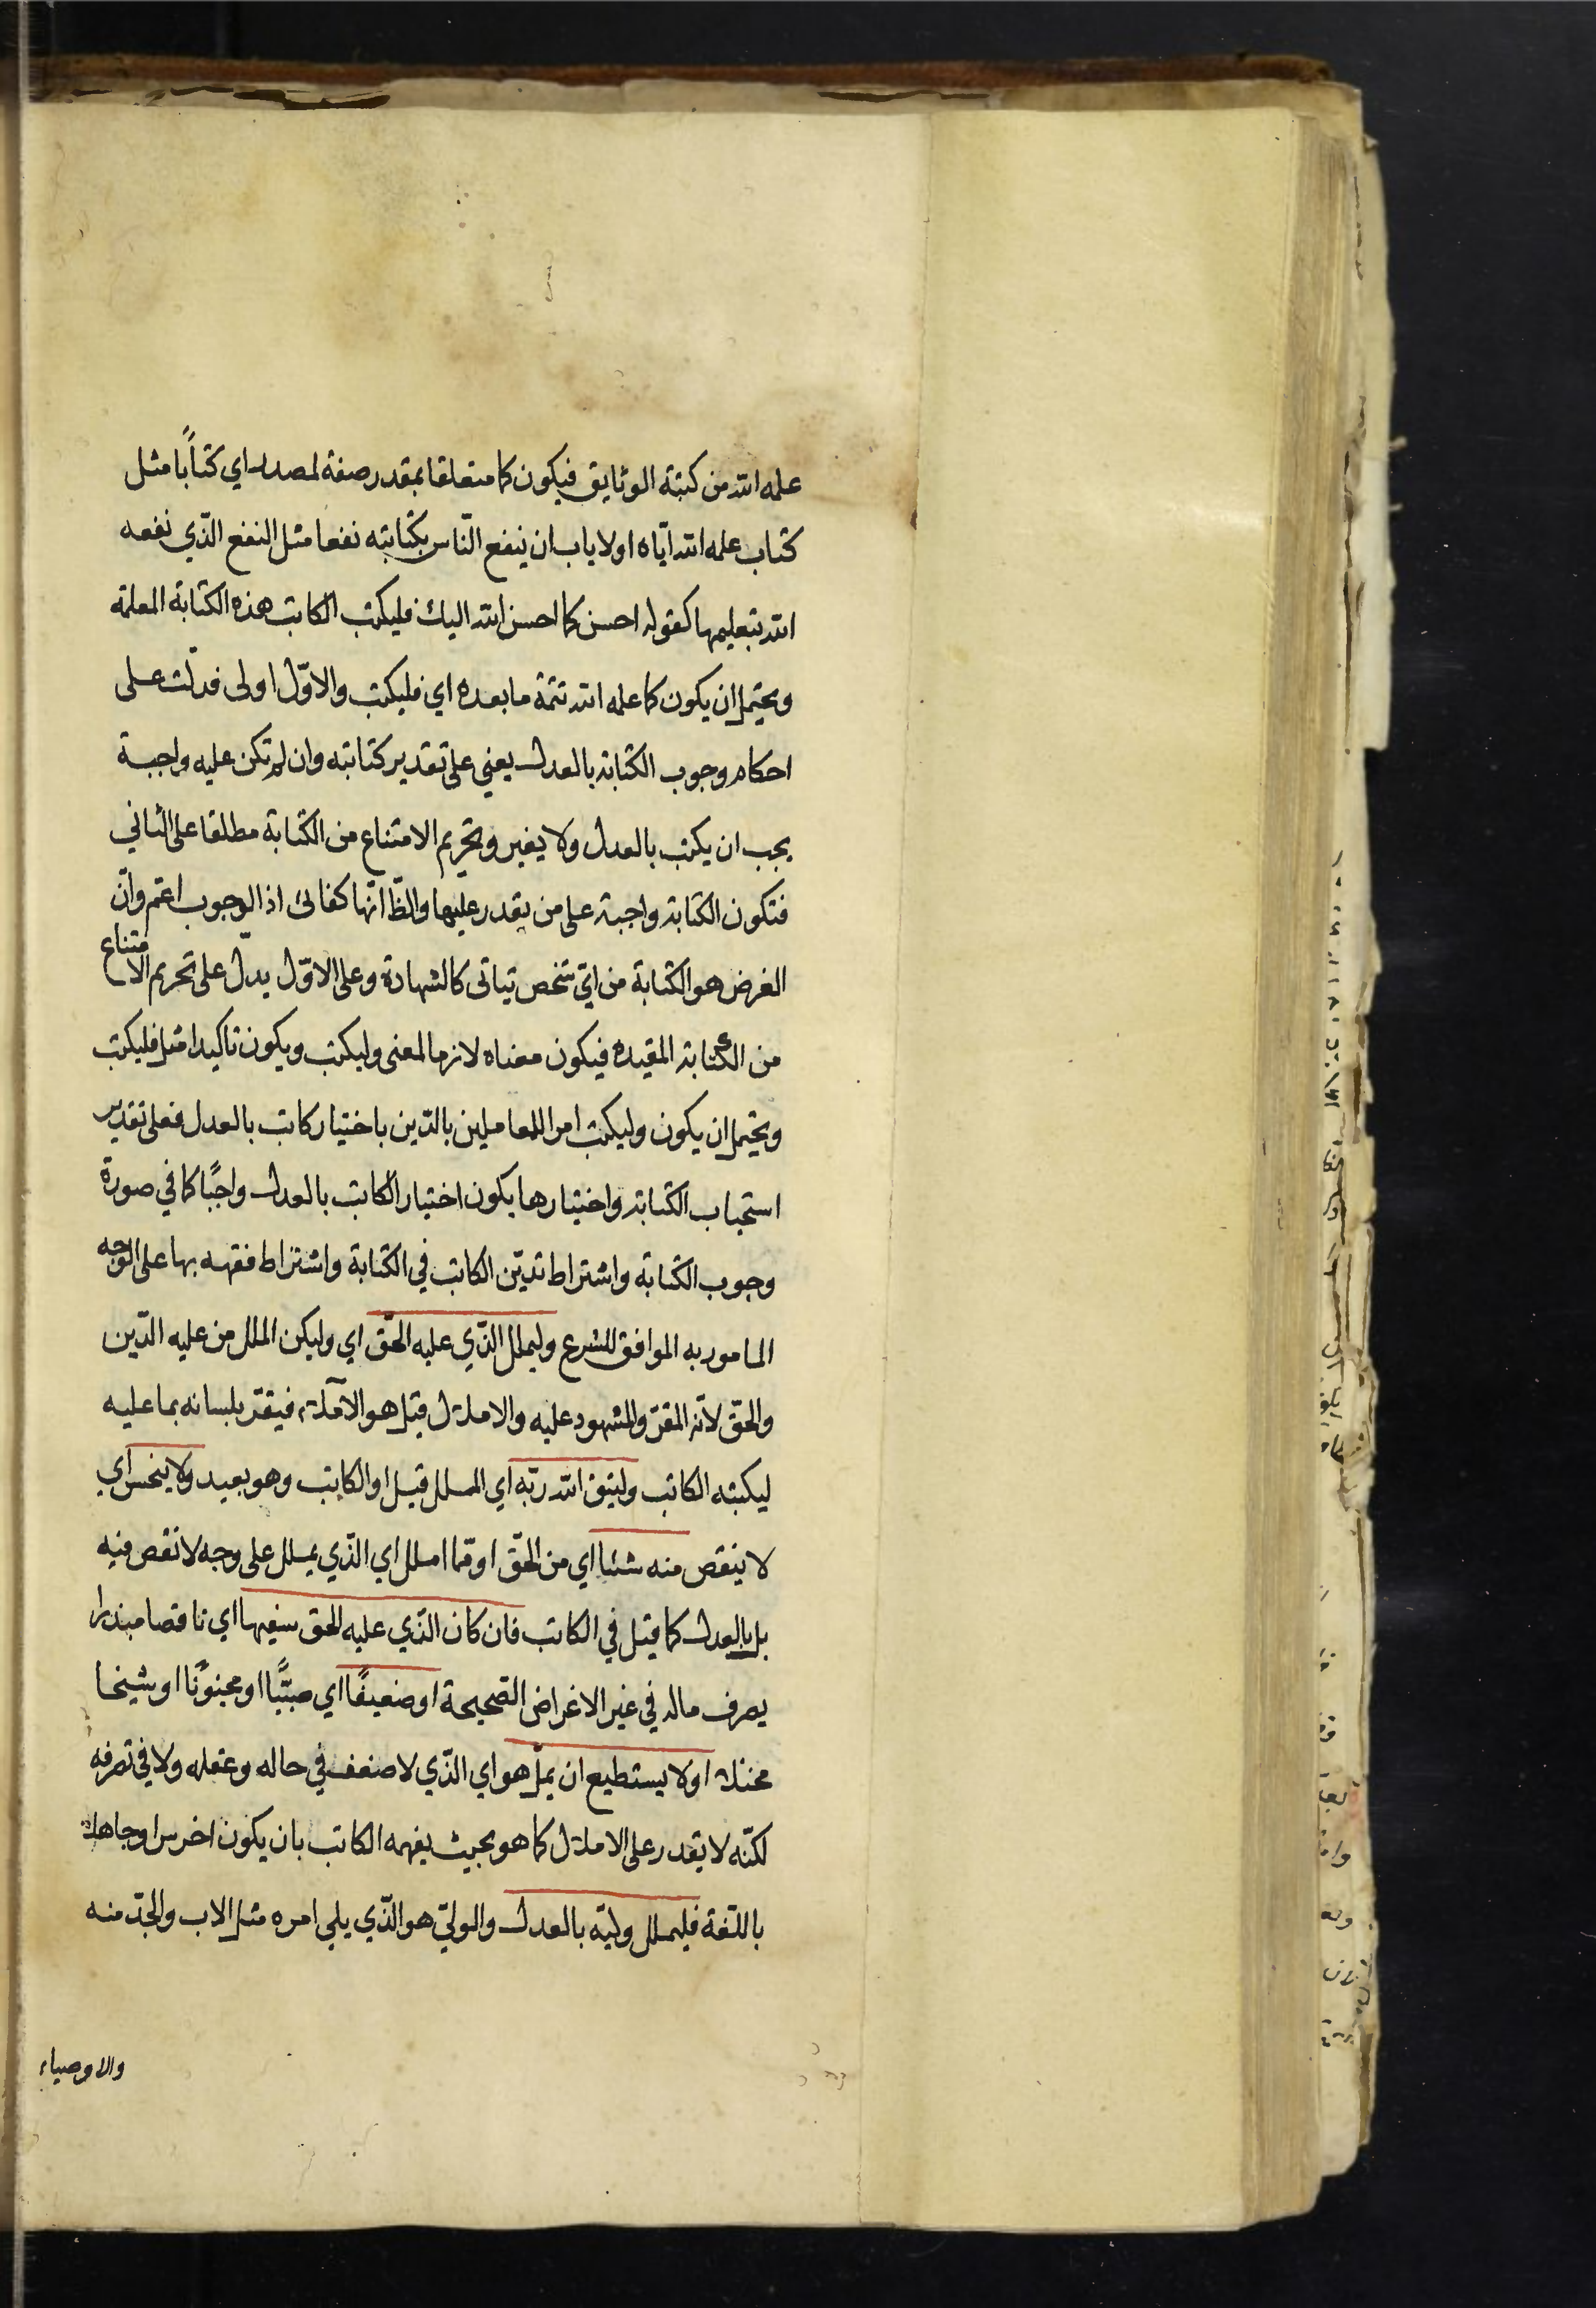 علمه الله من كتبة الوثايق فيكون كما متعلقا بمقدر صفة لمصدر اي كتاًبا مثل
كتاب علمه الله ايّاه او لا ياب ان ينفع النّاس بكتابته نفعا مثل النفع الّذي نفعه
الله بتعليمها كقوله احسن كما احسن الله اليك فليكتب الكاتب هذه الكتابة المعلمة
ويحتمل ان يكون كما علمه الله تتمة ما بعده اي فليكتب والاوّل اولى فدلّت على
احكام وجوب الكتابة بالعدل يعني على تقدير كتابته وان لم تكن عليه واجبة
يجب ان يكتب بالعدل ولا يغير وتحريم الامتناع من الكتابة مطلقا على الثاني
فتكون الكتابة واجبة على من يقدر عليها والظّ انّها كفائى اذ الوجوب اعّم وانّ
الغرض هو الكتابة من ايّ شخص يتاتى كالشهادة وعلى الاوّل يدلّ على تحريم الامتناع
من الكتابة المقيده فيكون معناه لازما لمعنى وليكتب ويكون تاكيدا مثل فليكتب
ويحتمل ان يكون وليكتب امرا للمعاملين بالدّين باختيار كاتب بالعدل فعلى تقدير
استحباب الكتابة واختيارها يكون اختيار الكاتب بالعدل واجبًا كما في صورة
وجوب الكتابة واشتراط تديّن الكاتب في الكتابة واشتراط فقهه بها على الوجه
المامور به الموافق للشرع وليملل الّذي عليه الحّق اي وليكن الملل من عليه الدّين
والحّق لانّه المقرّ والمشهود عليه والاملال قيل هو الاملاء فيقرّ بلسانه بما عليه
ليكتبه الكاتب وليتق الله ربّه اي الملل قيل او الكاتب وهو بعيد ولا يبخس اي
لا ينقص منه شئا اي من الحّق او ممّا املل اي الذّي يملل على وجه لا نقص فيه
بل بالعدل كما قيل في الكاتب فان كان الذّي عليه الحق سفيها اي ناقصا مبذرا
يصرف ماله في غير الاغراض الصّحيحة او ضعيفًا اي صبيًّا او مجنونًا او شيخا
مختلا او لا يستطيع ان يملّ هو اي الذّي لا ضعف في حاله وعقله ولا في تصرفه
لكنّه لا يقدر على الاملال كما هو بحيث يفهمه الكاتب بان يكون اخرس او جاهلا
باللّغة فليملل وليّه بالعدل والوليّ هو الّذي يلي امره مثل الاب والجدّ منه
والاوصياء